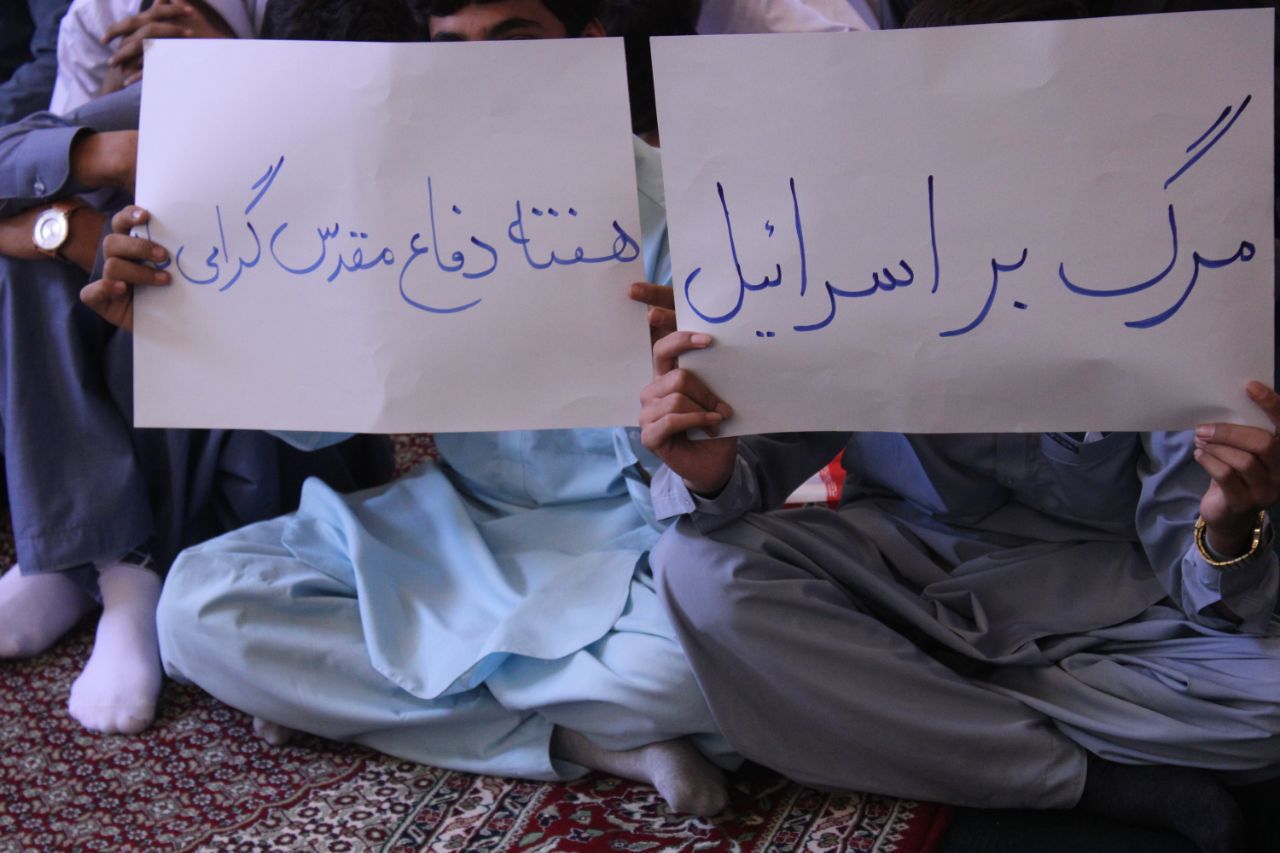 مرگ بر اسرائیل
هفته دفاع مقدس گرامی